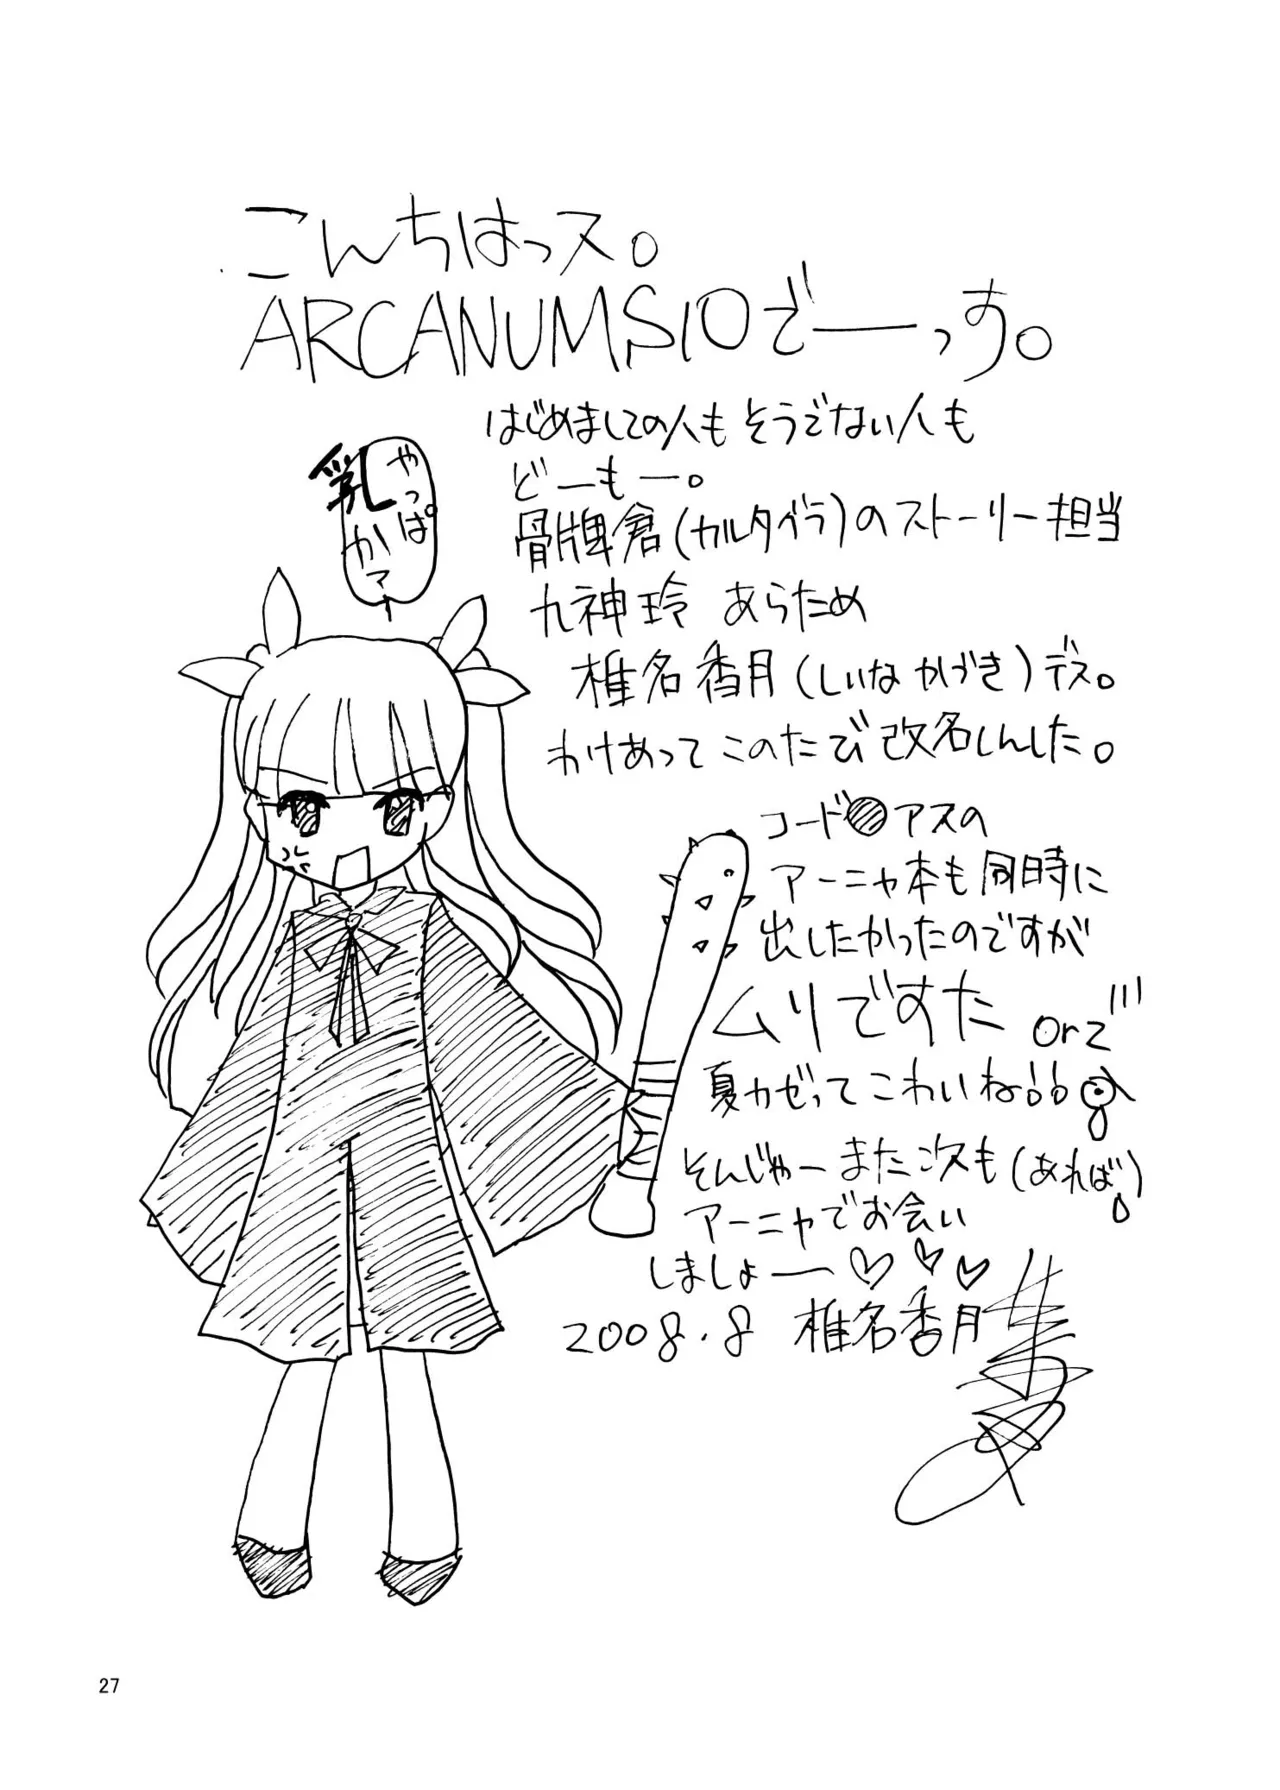 こんちはっス。
ARCANUMS10でーっす。
はじめましての人もそうでない人も
どーもー。
骨牌倉(カルタグラ)のストーリー担当
九神玲 あらため
椎名香月(しいなかづき)デス。
わけあってこのたび改名しんした。
やっぱ
乳かァ
コード●アスの
アーニャ本も同時に
出したかったのですが
ムリですた orz
夏カゼってこわいね
そんじゃーまた次も(あれば)
アーニャでお会い
しましょー♡♡♡
2008.8 椎名香月
27